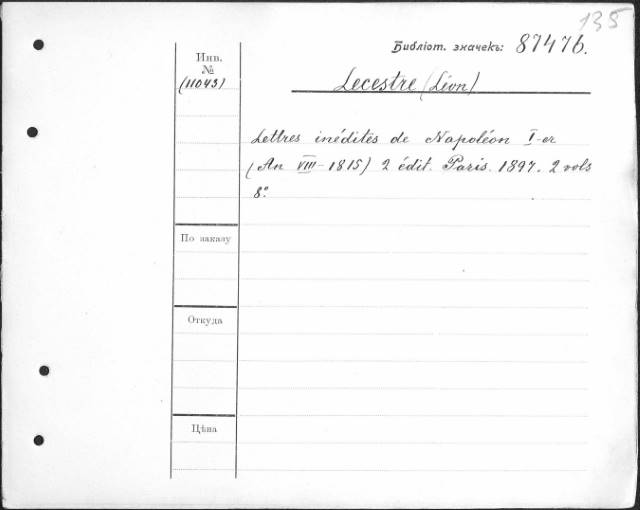 135
Библіот. значекъ: 87476.
Инв.
№
(11043)
Lecestre (Léon)
Lettres inédites de Napoléon I-er
(An VIII-1815) 2 édit. Paris. 1897. 2 vols
8º.
По заказу
Откуда
Цѣна